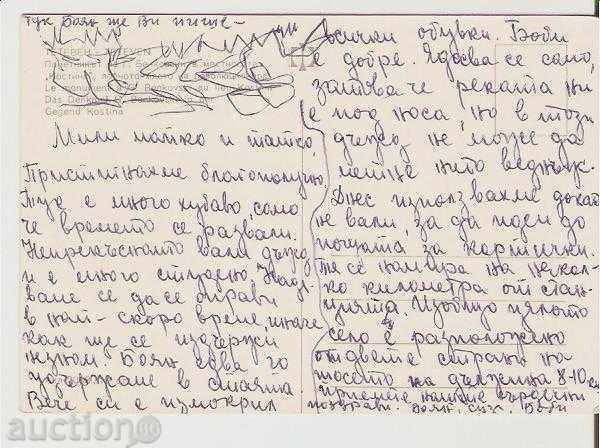 Тук Боян ще Ви пише –
ТЕТЕВЕН – TETEVEN
Паметникът на Бенковски в местността
„Костина", лобното място на
Le monument de Benkovski au
Das Denkmal Benkovski
Gegend Kostina
Мили майко и татко,
Пристигнахме благополучно.
Тук е много хубаво, само
че времето се развали.
Непрекъснато вали дъжд
и е много студено. Надя-
ваме се да се оправи
в най-скоро време, иначе
как ще се издържи
не знам. Боян едва го
удържаме в стаята.
Вече си е измокрил
всички обувки. Боби
е добре. Ядосва се само,
затова че реката ни
е под носа, но в този
дъжд не може да
метне нито веднъж.
Днес използвахме докато
не вали, за да идем до
пощата за картички.
Тя се намира на някол-
ко километра от стан-
цията. Изобщо цялото
село е разположено
от двете страни на
шосето на дължина 8-10 км
Приемете нашите сърдечни
поздрави. Боян, Боби
auction.bg